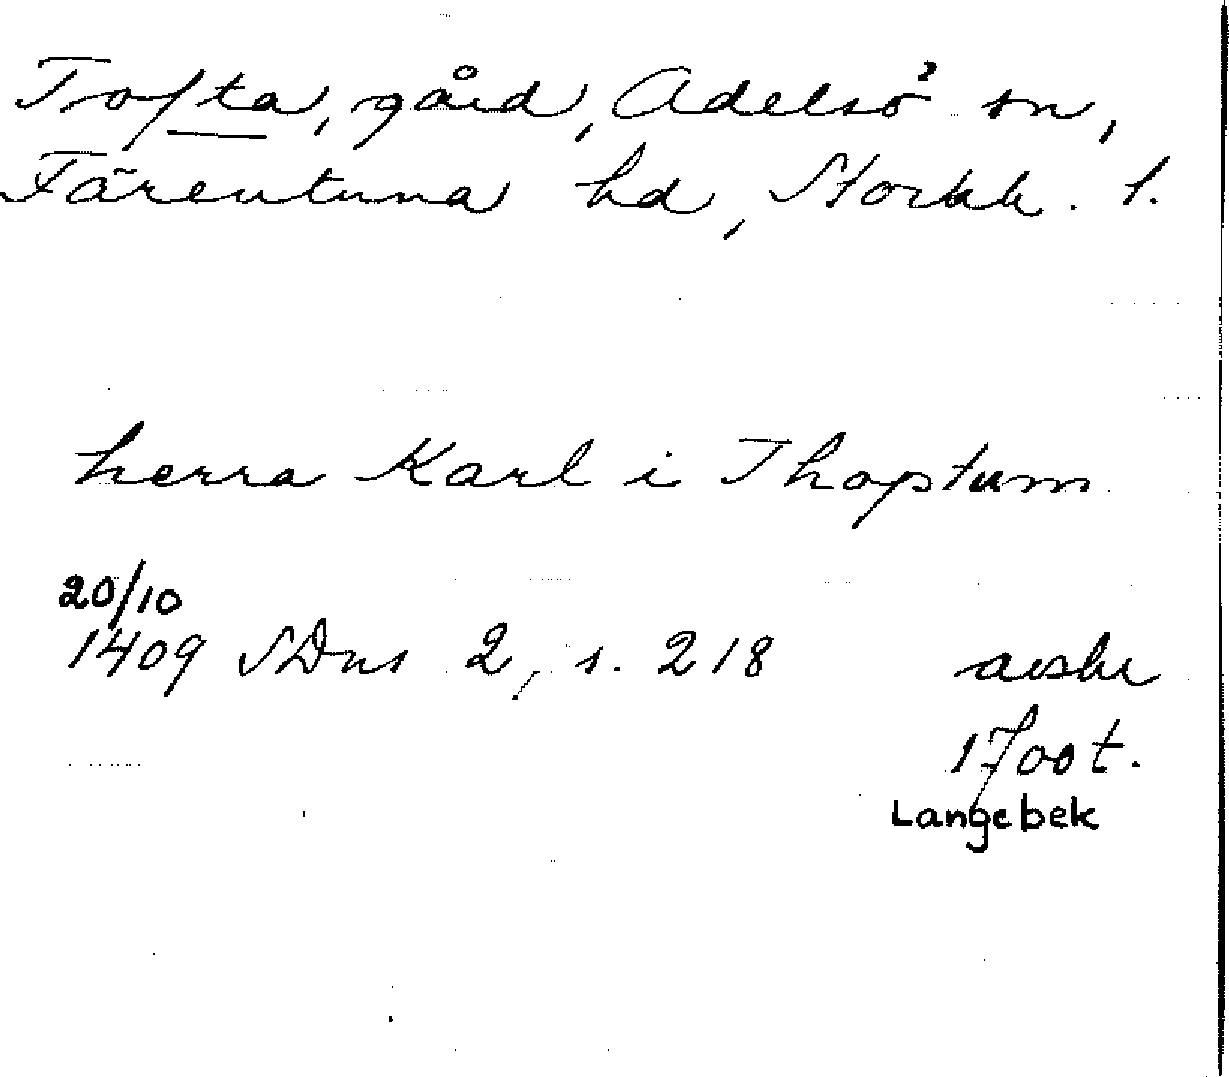 Tofta, gård, Adelsö sn,
Färentuna hd, Stockh. l.
herra Karl i Thoptum
20/10
1409 SDns 2, s. 218 avskr
1700 t.
Langebek